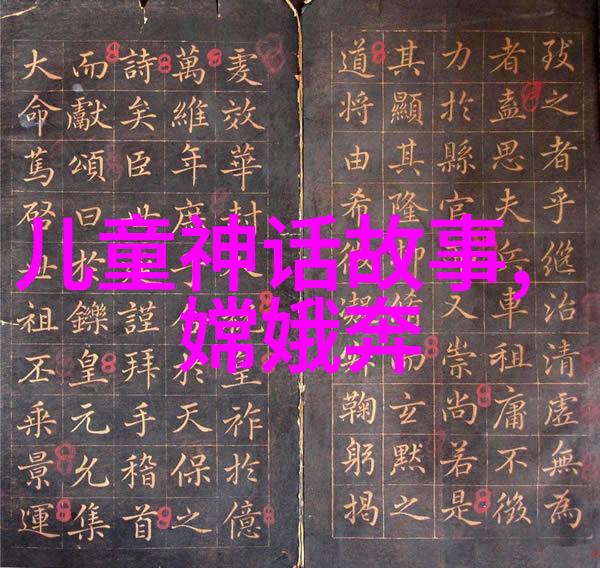 儿童神话故事,
嫦娥奔
之者乎継治清虛無為
者盍思夫兵車租庸不
力於縣官又崇尚若是
其顯其隆玄默之
道將由希鞠躬揭
效華封祚於億
萬維年於天保之
詩矣臣謹拜手稽首
而獻頌曰於鑠皇元允集
大命篤啓丗祖丕乗景運